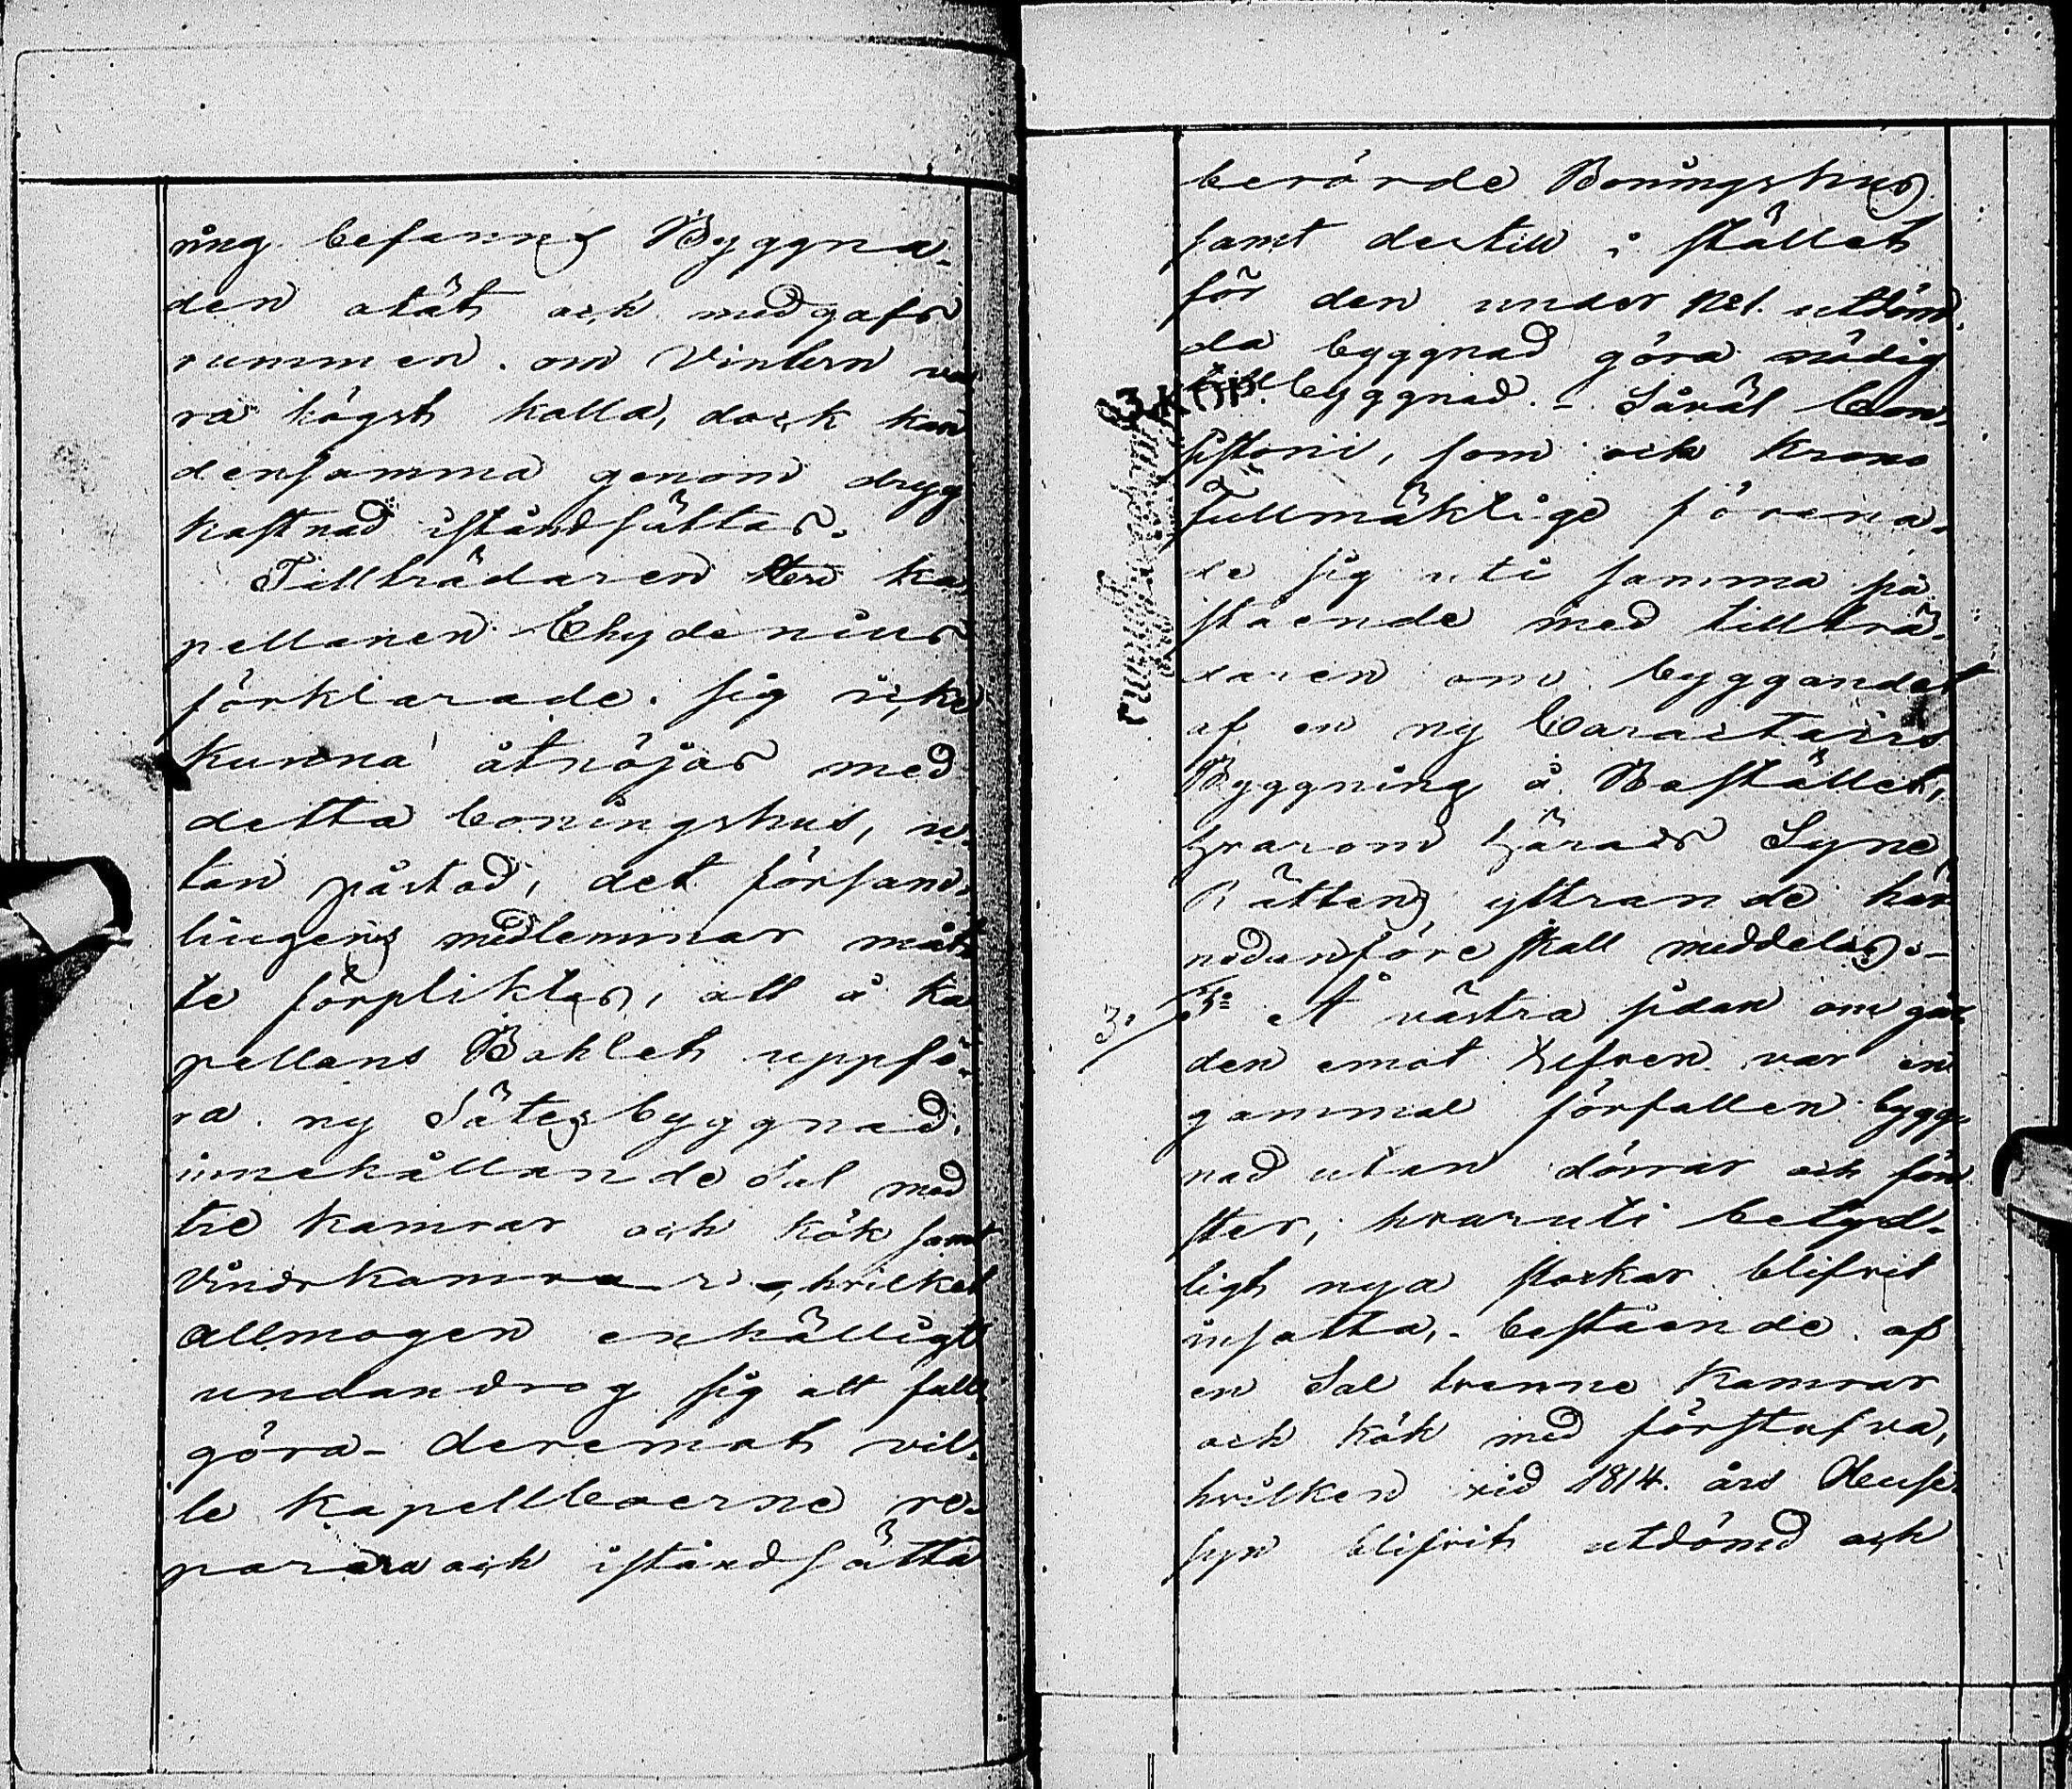 ning befanns Byggna-
den otät och medgafs
rummen om Vintern va
ra högst kalla, dock kan
densamma genom dryg
kostnad iståndsättas.
Tillträdaren Herr Ka
pellanen Chydenius
förklarade sig icke
kunna åtnöjas med
detta boningshus, u-
tan påstod, det försam-
lingens medlemmar måt-
te förpliktas, att å Ka
pellans Bohlet uppfö-
ra ny Sätesbyggnad,
innehållande Sal med
tre kamrar och kök samt
Vindskamrar, hvilket
allmogen enhälligt
undandrog sig att full-
göra - deremot vil-
le Kapellboerne re-
parera och iståndsätta
berörde Boningshus
samt dertill i stället
för den under No 1. utdöm-
da byggnad göra nödig
till byggnad. - Såväl Con-
sistorii, som ock Krono
Fullmäktige förena-
de sig uti samma på
stående med tillträ-
daren om byggandet
af en ny Caractairs
Byggning å Bostället,
hvarom Härads Syne
Rättens yttrande här
nedanföre skall meddelas. -
3. 3:o Å västra sidan om går-
den emot Elfven var en
gammal förfallen bygg-
nad utan dörrar och fön
ster, hvaruti betyd-
ligt nya stockar blifvit
insatta, - bestående af
en Sal trenne Kamrar
och Kök med förstufva,
hvilken vid 1814. års Huse-
syn blifvit utdömd och